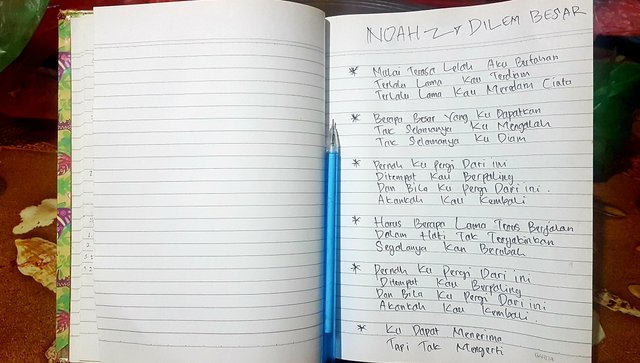 NOAH DILEM BESAR
* Mulai Terasa Lelah Aku Bertahan
Terlalu Lama Kau Terdiam
Terlalu Lama Kau Meredam Cinta
* Berapa Besar Yang Ku Dapatkan
Tak Selamanya Ku Mengalah
Tak Selamanya Ku Diam
* Pernah Ku Pergi Dari ini
Ditempat Kau Berpaling
Dan Bila Ku Pergi Dari ini.
Akankah Kau Kembali
* Harus Berapa Lama Terus Berjalan
Dalam Hati Tak Teryakinkan
Segalanya Kan Berubah
* Pernah Ku Pergi Dari ini
Ditempat Kau Berpaling
Dan Bila Ku Pergi Dari ini
Akankah Kau Kembali.
* Ku Dapat Menerima
Tapi Tak Mengerti